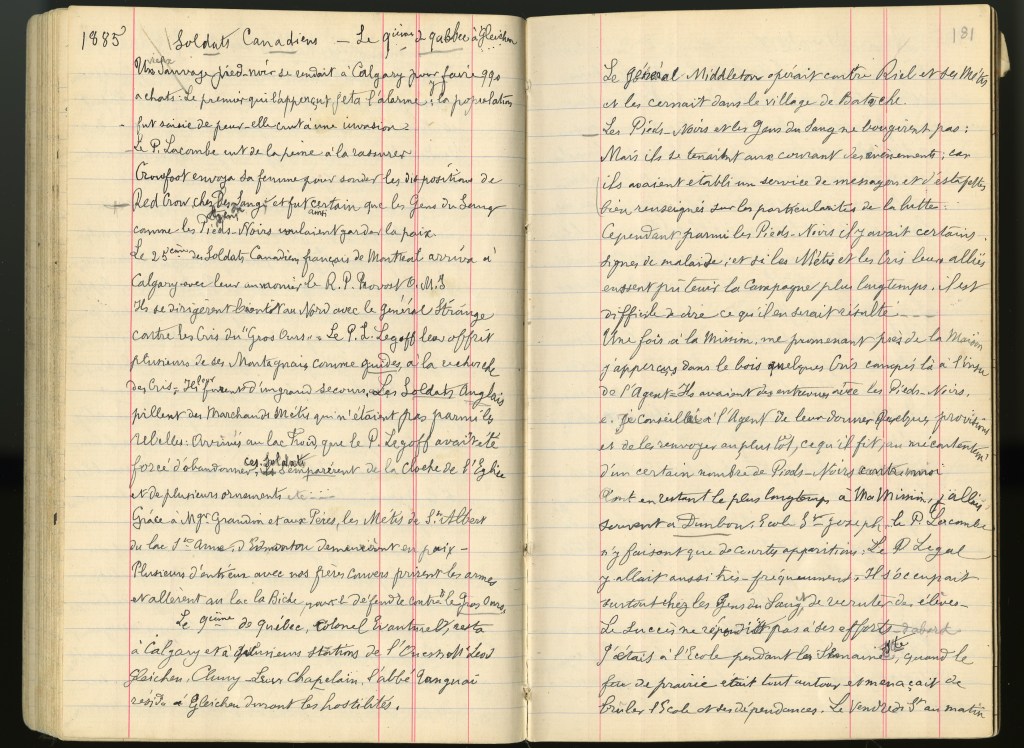 1885
Soldats Canadiens — Le 9ième de Québec à Gleichen
Un sauvage pied-noir se rendait à Calgary pour faire qqs
achats: Le premier qui l'apperçut jeta l'alarme; la population
fut saisie de peur – elle crut à une invasion –
Le P. Lacombe eut de la peine à la rassurer
Crowfoot envoya sa femme pour sonder les dispositions de
Red Crow, chez Gens du Sang et fut certain que les Gens du Sang
comme les Pieds-Noirs voulaient garder la paix.
Le 25ième des Soldats Canadien français de Montreal arriva à
Calgary avec leur aumonier le R.P. Provost O.M.I
Ils se dirigèrent bientôt au Nord avec le général Strange
contre les Cris du "Gros Ours". Le P. L. Legoff leur offrit
plusieurs de ses Montagnais comme guides, à la recherche
des Cris; Ils leur furent d'un grand secours. Les Soldats Anglais
pillent des Marchands Métis qui n'étaient pas parmi les
rebelles: Arrivés au lac Froid, que le P. Legoff avait été
forcé d'abandonner, ces soldats s'emparèrent de la Cloche de l'Eglise
et de plusieurs ornements etc
Grâce à Mgr Grandin et aux Pères, les Métis de St Albert
du lac Ste Anne, d'Edmonton demeurèrent en paix –
Plusieurs d'entr'eux avec nos frères convers prirent les armes
et allerent au lac la Biche, pour le défendre contre le Gros Ours,
Le 9ième de Québec, Colonel Evanturel, resta
à Calgary et à plusieurs stations de l'Ouest: McLeod
Gleichen, Cluny – Leur Chapelain, l'abbé
résida à Gleichen durant les hostilités.
181
Le général Middleton opérait contre Riel et ses Métis
et les cernait dans le village de Batoche.
Les Pieds-Noirs et les Gens du Sang ne bougèrent pas:
Mais ils se tenaient aux courant des évènements; car
ils avaient etabli un service de messagers et d'estafettes
bien renseignés sur les particularités de la lutte:
Cependant parmi les Pieds-Noirs il y avait certains
signes de malaise; et si les Métis et les Cris leurs alliés
eussent pu tenir la campagne plus longtemps, il est
difficile de dire ce qu'il en serait résulté
Une fois à la Mission, me promenant près de la Maison
j'apperçois dans le bois quelques Cris campés là à l'insu
de l'Agent – Ils avaient des entrevues avec les Pieds-Noirs.
Je conseillai à l'Agent de leur donner quelques provisions
et de les renvoyer au plus tôt, ce qu'il fit, au mécontentement
d'un certain nombre de Pieds-Noirs contre moi
Tout en restant le plus longtemps à Ma Mission, j'allais
souvent à Dunbow, Ecole St Joseph. Le P. Lacombe
n'y faisant que de courtes apparitions: Le P Legal
y allait aussi très-fréquemment, Il s'occupait
surtout chez les Gens du Sang de recruter des élèves –
Le succès ne répondit pas à ses efforts d'abord
J'étais à l'Ecole pendant la Semaine Ste, quand le
feu de prairie etait tout autour et menaçait de
bruler l'Ecole et ses dépendances. Le Vendredi St au matin